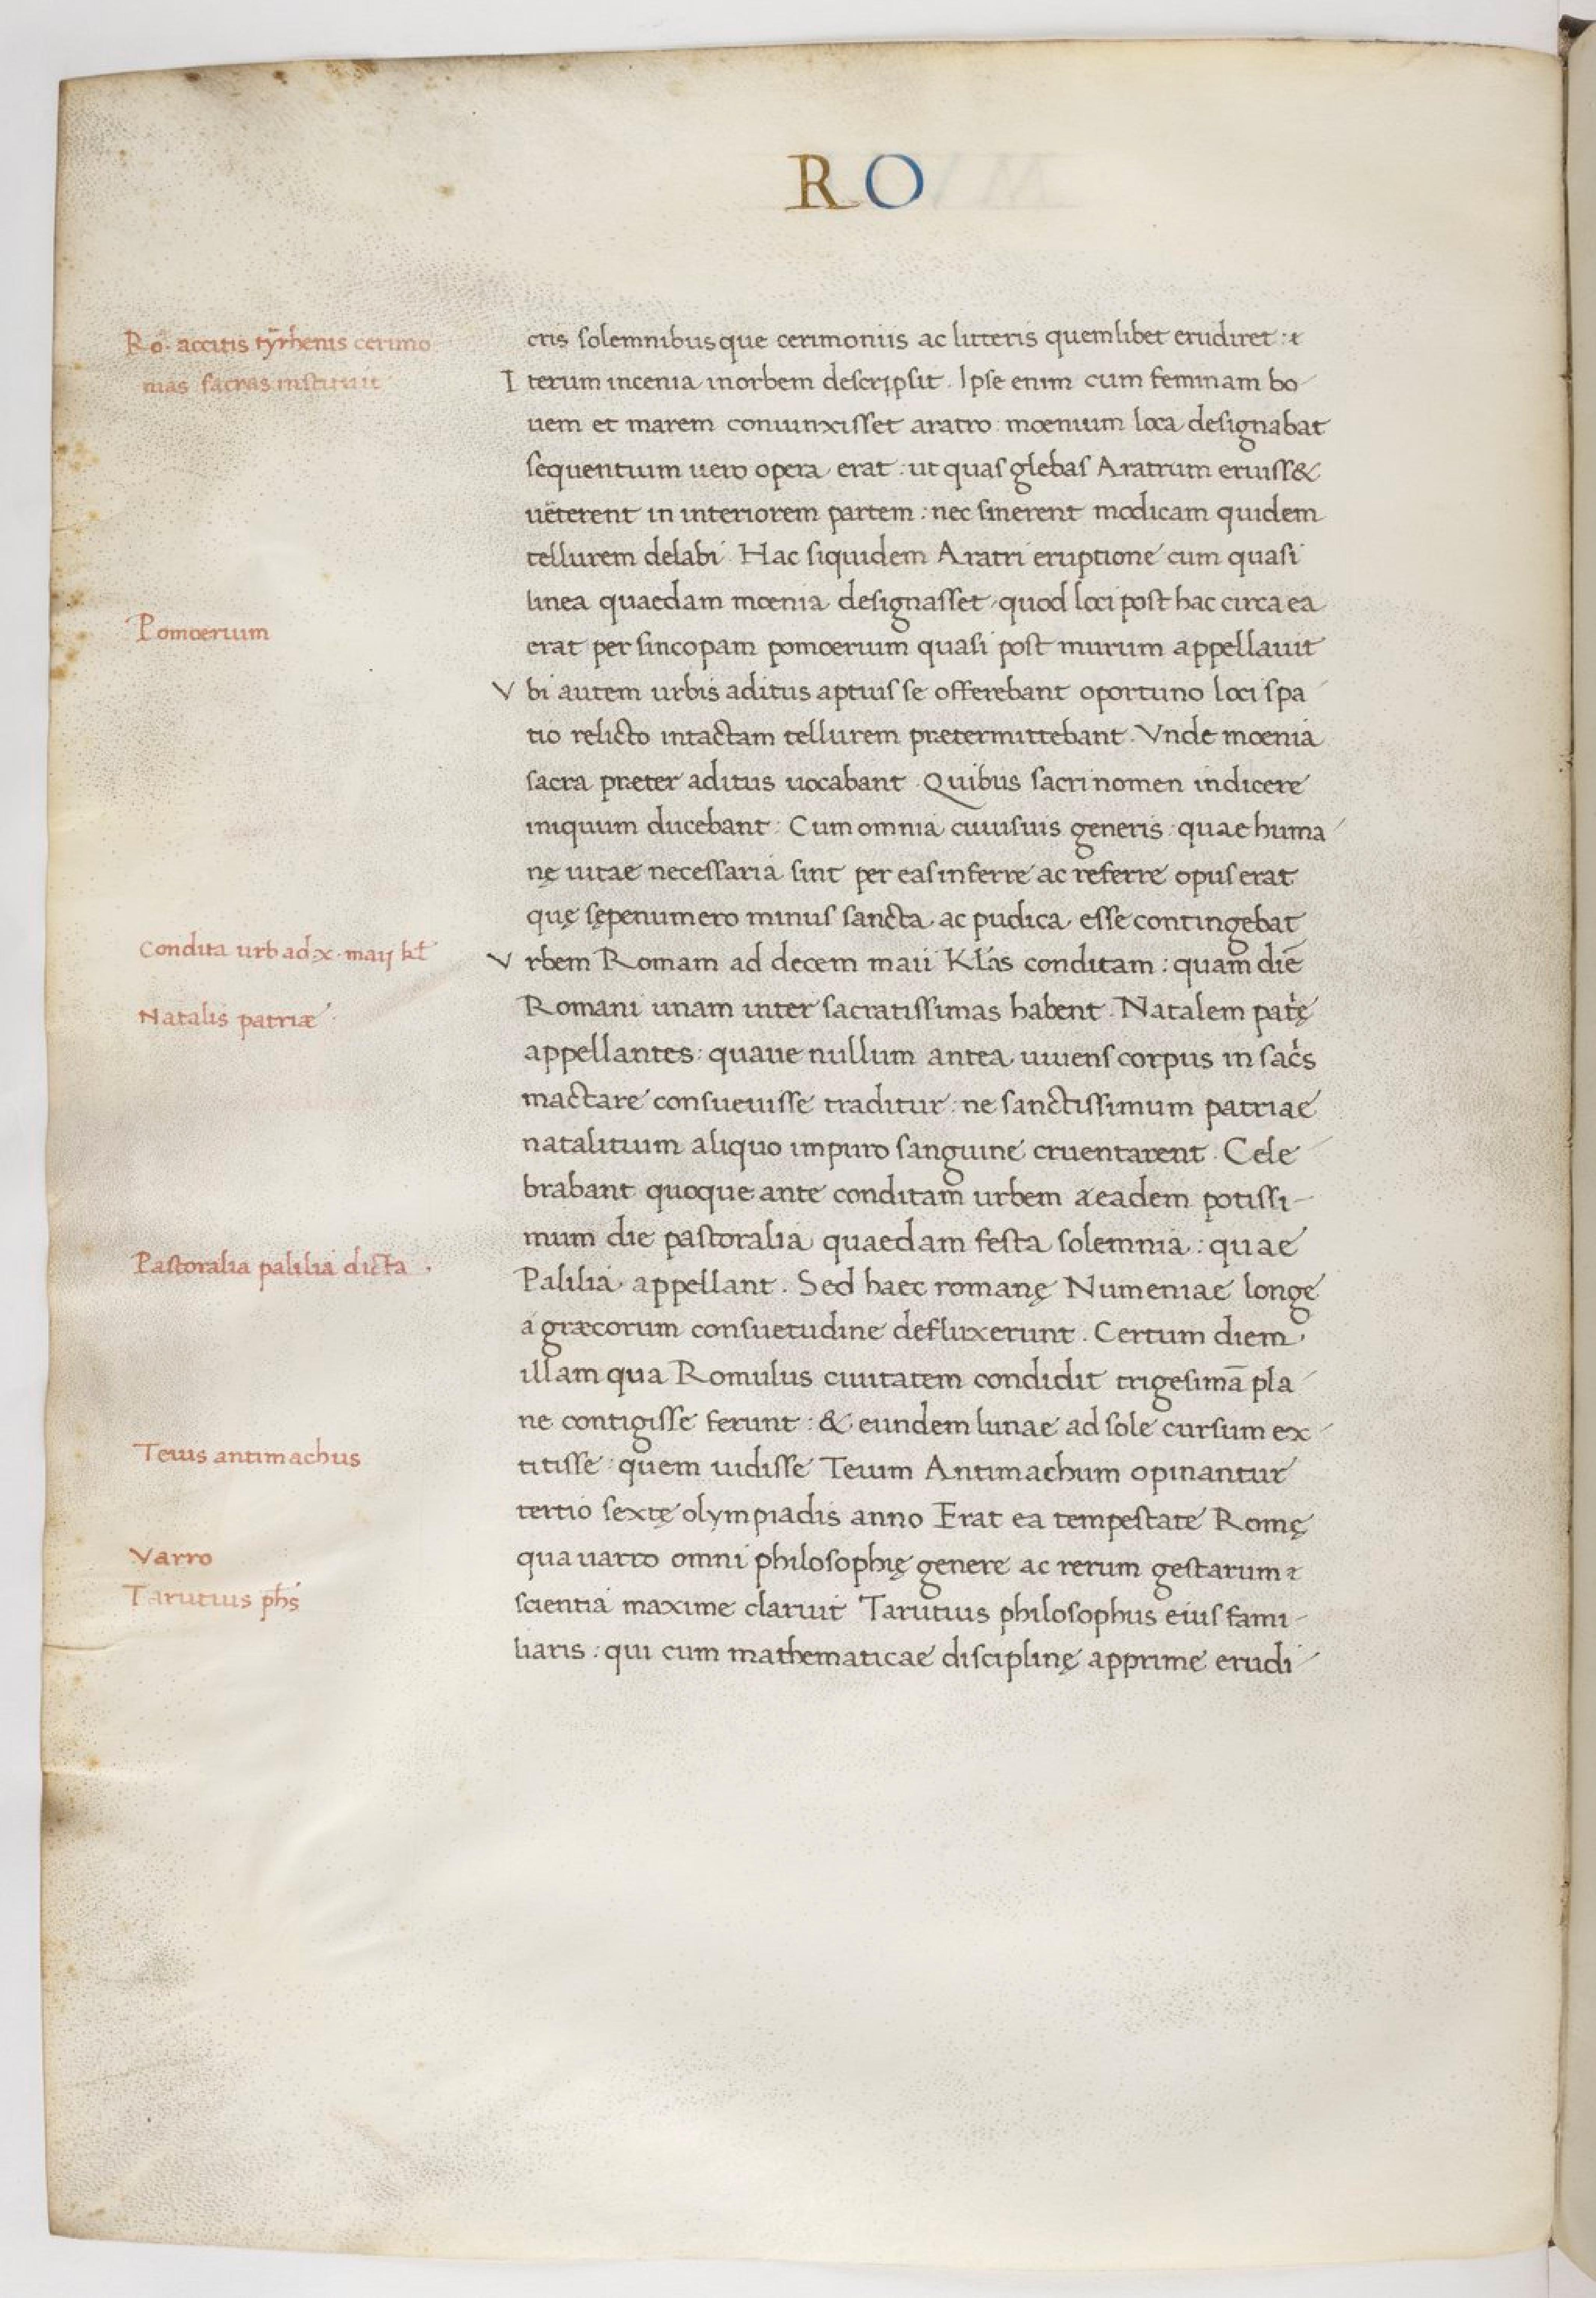 RO
Rō. accitis tyrrhenis cerimo
nias sacras instituit
cris solemnibusque cerimoniis ac litteris quemlibet erudiret: &
Iterum incenia in orbem descripsit. Ipse enim cum feminam bo
uem et marem coniunxisset aratro: moenium loca designabat
sequentium uero opera erat: ut quas glebas Aratrum eruiss&
uerterent in interiorem partem: nec sinerent modicam quidem
tellurem delabi. Hac siquidem Aratri eruptione cum quasi
linea quaedam moenia designasset, quod loci post hac circa ea
Pomoerium
erat per sincopam pomoerium quasi post murum appellauit
Vbi autem urbis aditus aptius se offerebant oportuno loci spa
tio relicto intactam tellurem prætermittebant. Vnde moenia
sacra præter aditus uocabant. Quibus sacri nomen indicere
iniquum ducebant: Cum omnia cuiusuis generis: quae huma
nę uitae necessaria sint per eas inferre ac referre opus erat
quę sępenumero minus sancta ac pudica esse contingebat
Condita urb ad.x. maij kł
Vrbem Romam ad decem maii Kłas conditam: quam diē
Natalis patriæ.
Romani unam inter sacratissimas habent. Natalem patrię
appellantes: quaue nullum antea uiuens corpus in sacris
mactare consueuisse traditur: ne sanctissimum patriae
natalitium aliquo impuro sanguine cruentarent. Cele
brabant quoque ante conditam urbem a eadem potissi-
mum die pastoralia quaedam festa solemnia: quae
Pastoralia palilia dicta.
Palilia appellant. Sed haec romanę Numeniae longe
a græcorum consuetudine defluxerunt. Certum diem
illam qua Romulus ciuitatem condidit trigesimā pla
ne contigisse ferunt: & eundem lunae ad sole cursum ex
Teius antimachus
titisse: quem uidisse Teium Antimachum opinantur
tertio sextę olympiadis anno Erat ea tempestate Romę
Varro
qua uarro omni philosophię genere ac rerum gestarum &
Tarutius phs
scientia maxime claruit Tarutius philosophus eius fami-
liaris: qui cum mathematicae disciplinę apprime erudi